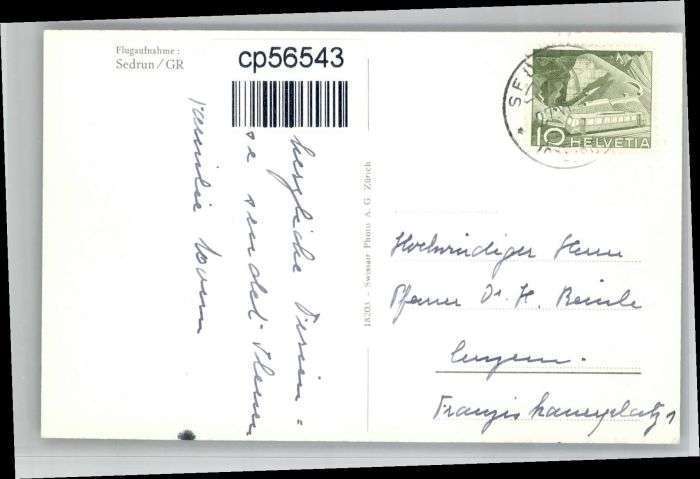 Flugaufnahme :
Sedrun/GR
cp56543
herzliche Ferien-
se sendet Ihnen
Familie
18203 - Swissair Photo A. G. Zürich
SEDRUN
10 HELVETIA
Hochwürdiger Herrn
Pfarrer Dr. H.
Luzern.
Franziskanerplatz 1